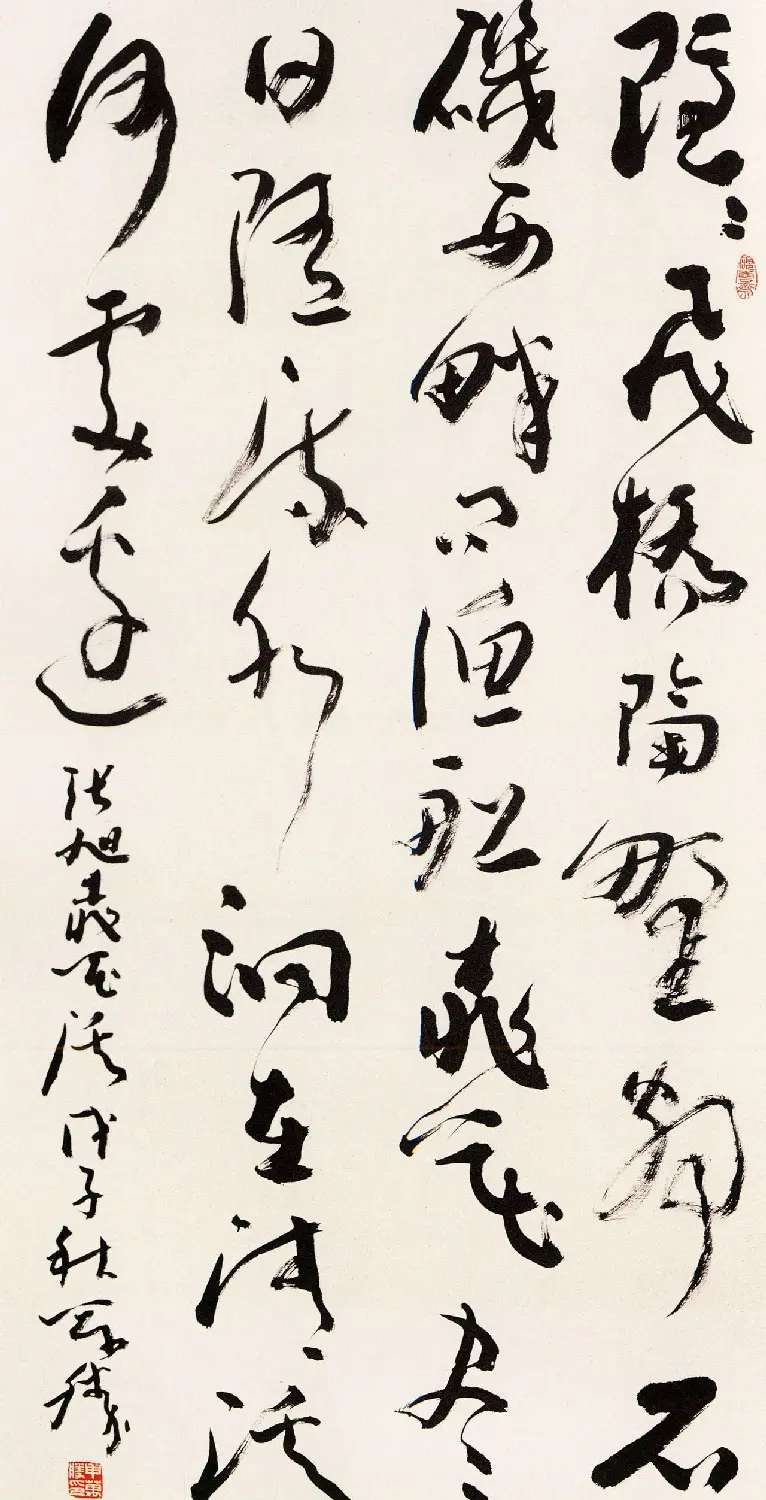 隱隱飛橋隔野煙石
磯西畔問漁船桃花尽
日隨流水洞在清溪
何處邊 張旭桃花溪戊子秋萬勝
申萬勝印